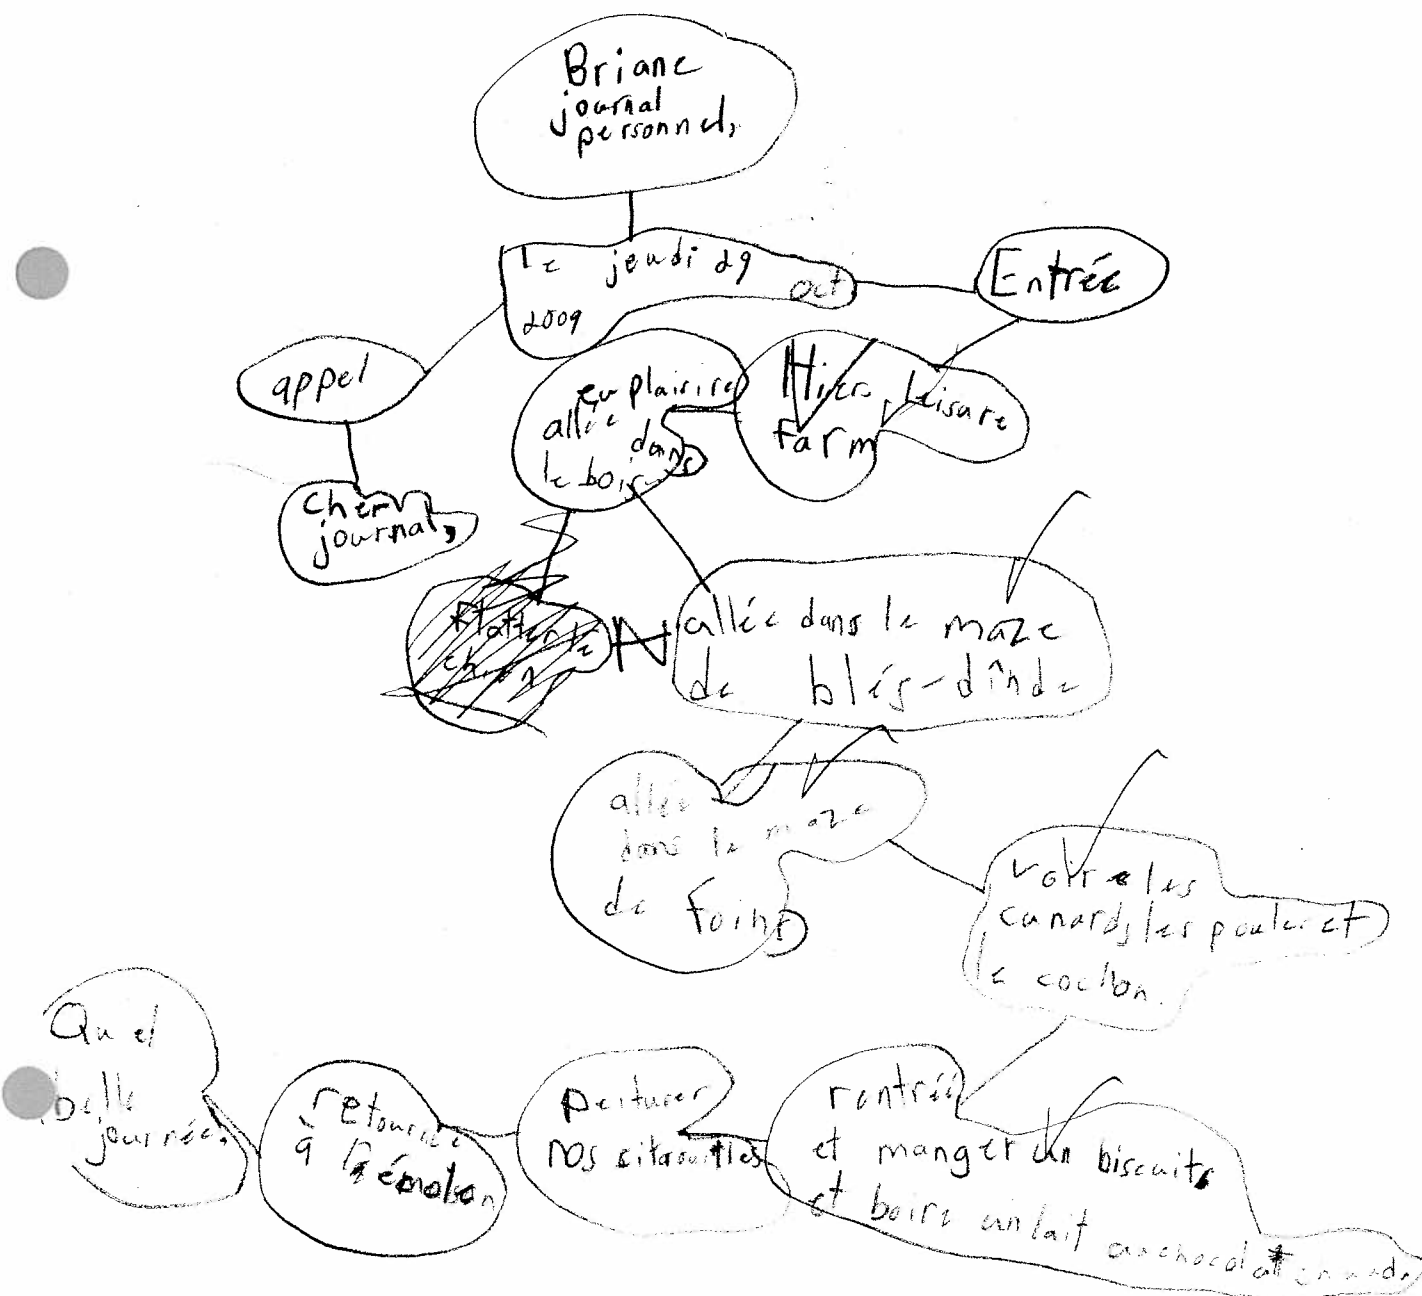 Briane
journal
personnel,
le jeudi 29
oct
2009
Entrée
appel
cher
journal,
eu plairire
allée dans
le bois
Hier, leisure
farm
allée dans le maze
de blés-dînde
allée
dans le maze
de foins
voir les
canards, les poules et
le cochon.
rentrée
et manger un biscuits
et boire un lait au chocolat
nos
retournée
à
Quel
belle
journée,